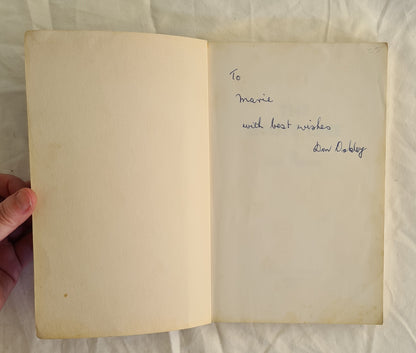 To
Marie
with best wishes
Don